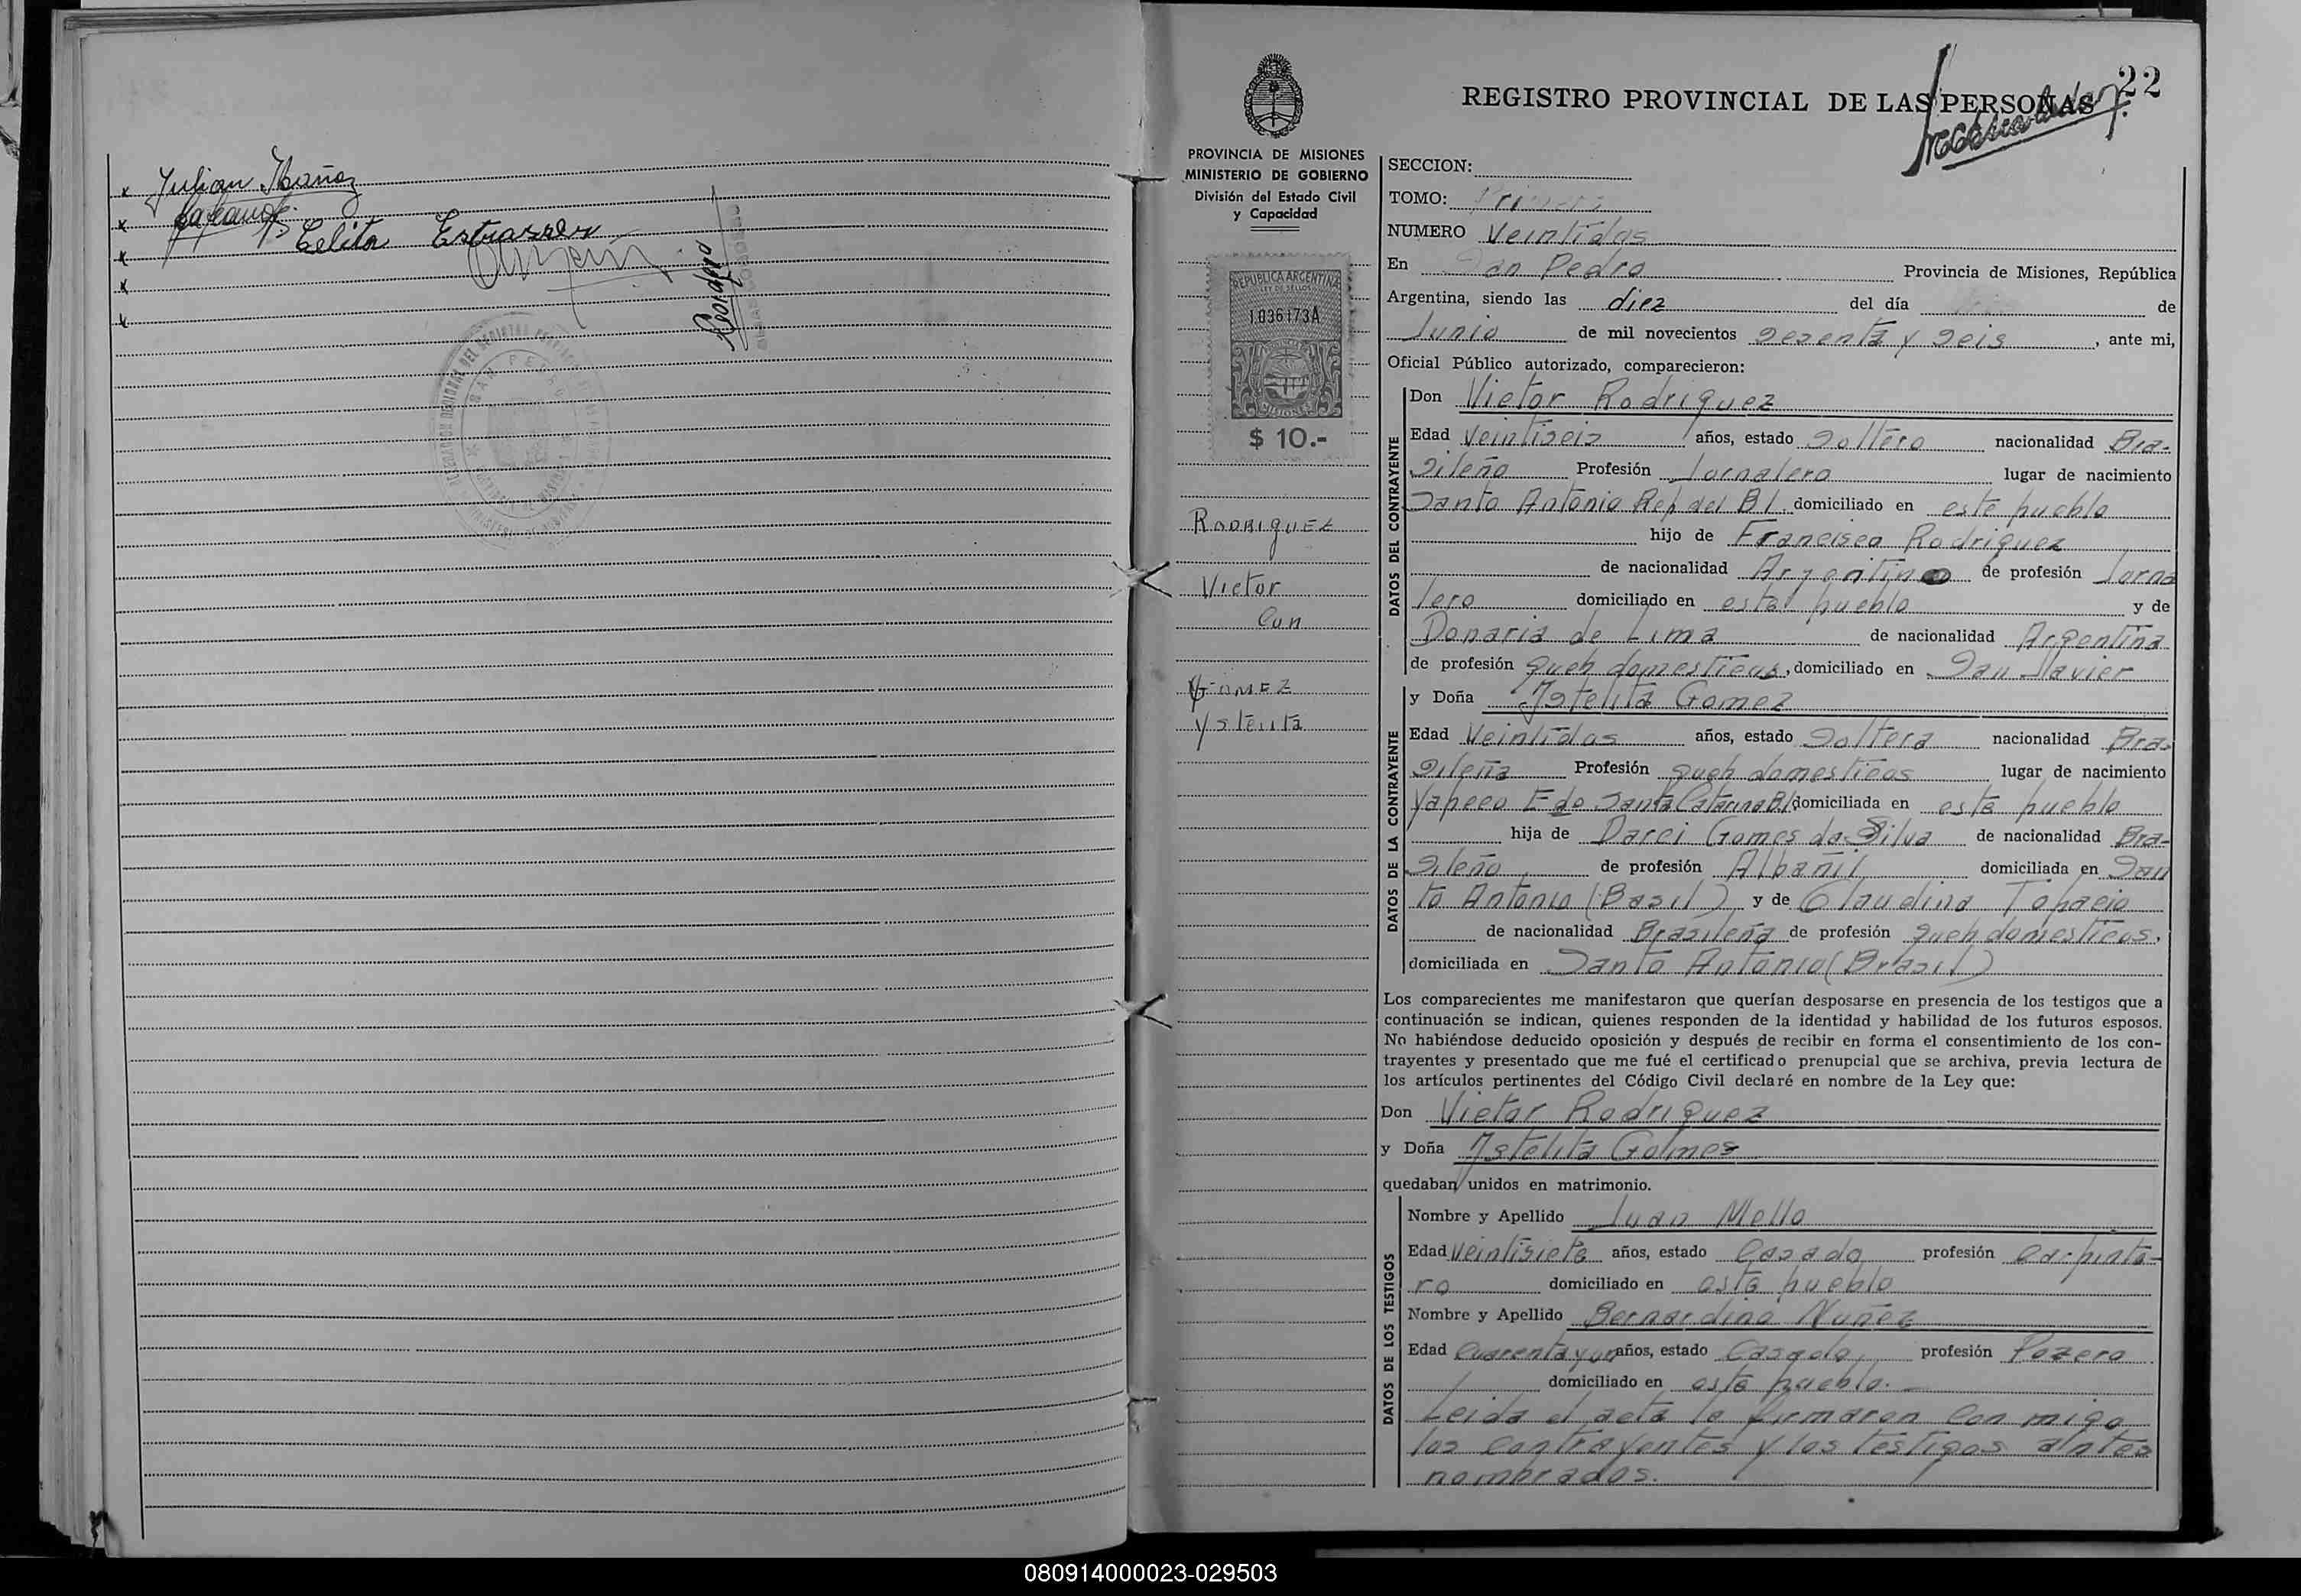 Julian Ibañez
Celita Estrazer
SAN PEDRO
22
REGISTRO PROVINCIAL DE LAS PERSONAS
PROVINCIA DE MISIONES
MINISTERIO DE GOBIERNO
División del Estado Civil
y Capacidad
REPUBLICA ARGENTINA
LEY DE SELLOS
1036173A
MISIONES
$ 10.-
RODRIGUEZ
Victor
Con
GOMEZ
Ystelita
SECCION:
TOMO: Primero
NUMERO Veintidos
En San Pedro Provincia de Misiones, República
Argentina, siendo las diez del día de
Junio de mil novecientos sesenta y seis, ante mi,
Oficial Público autorizado, comparecieron:
DATOS DEL CONTRAYENTE
Don Victor Rodriguez
Edad Veintiseis años, estado soltero nacionalidad Bra-
sileño Profesión Jornalero lugar de nacimiento
Santo Antonio Rep del Bl. domiciliado en este pueblo
hijo de Francisco Rodriguez
de nacionalidad Argentino de profesión Jorna
lero domiciliado en este pueblo y de
Donaria de Lima de nacionalidad Argentina
de profesión queh domesticos, domiciliado en San Javier
DATOS DE LA CONTRAYENTE
y Doña Istelita Gomez
Edad Veintidos años, estado soltera nacionalidad Bra-
sileña Profesión queh domesticos lugar de nacimiento
Edo Santa Catarina Bl domiciliada en este pueblo
hija de Darci Gomes da Silva de nacionalidad Bra-
sileño de profesión Albañil domiciliada en San
to Antonio (Basil) y de Claudina Topacio
de nacionalidad Brasileña de profesión queh domesticos,
domiciliada en Santo Antonio (Brasil)
Los comparecientes me manifestaron que querían desposarse en presencia de los testigos que a
continuación se indican, quienes responden de la identidad y habilidad de los futuros esposos.
No habiéndose deducido oposición y después de recibir en forma el consentimiento de los con-
trayentes y presentado que me fué el certificado prenupcial que se archiva, previa lectura de
los artículos pertinentes del Código Civil declaré en nombre de la Ley que:
Don Victor Rodriguez
y Doña Istelita Golmes
quedaban unidos en matrimonio.
DATOS DE LOS TESTIGOS
Nombre y Apellido Juan Mello
Edad Veintisiete años, estado Casado profesión Carpinte-
ro domiciliado en este pueblo
Nombre y Apellido Bernardino Nuñez
Edad Cuarenta y un años, estado Casado, profesión Pozero
domiciliado en este pueblo.
Leida el acta la firmaron con migo
los contrayentes y los testigos antes
nombrados.
080914000023-029503